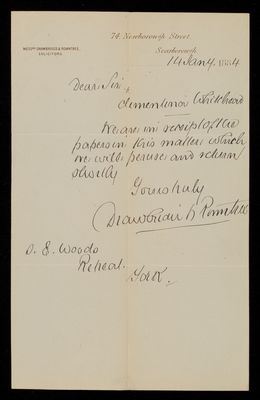 74, Newborough Street,
Scarborough
MESSRS DRAWBRIDGE & ROWNTREE,
SOLICITORS.
14 Jany. 1884
Dear Sir,
Clementina Whitehead
We are in receipt of the
papers in this matter which
we will peruse and return
shortly
Yours truly
Drawbridge & Rowntree
D. E. Woods
Retreat.
York.